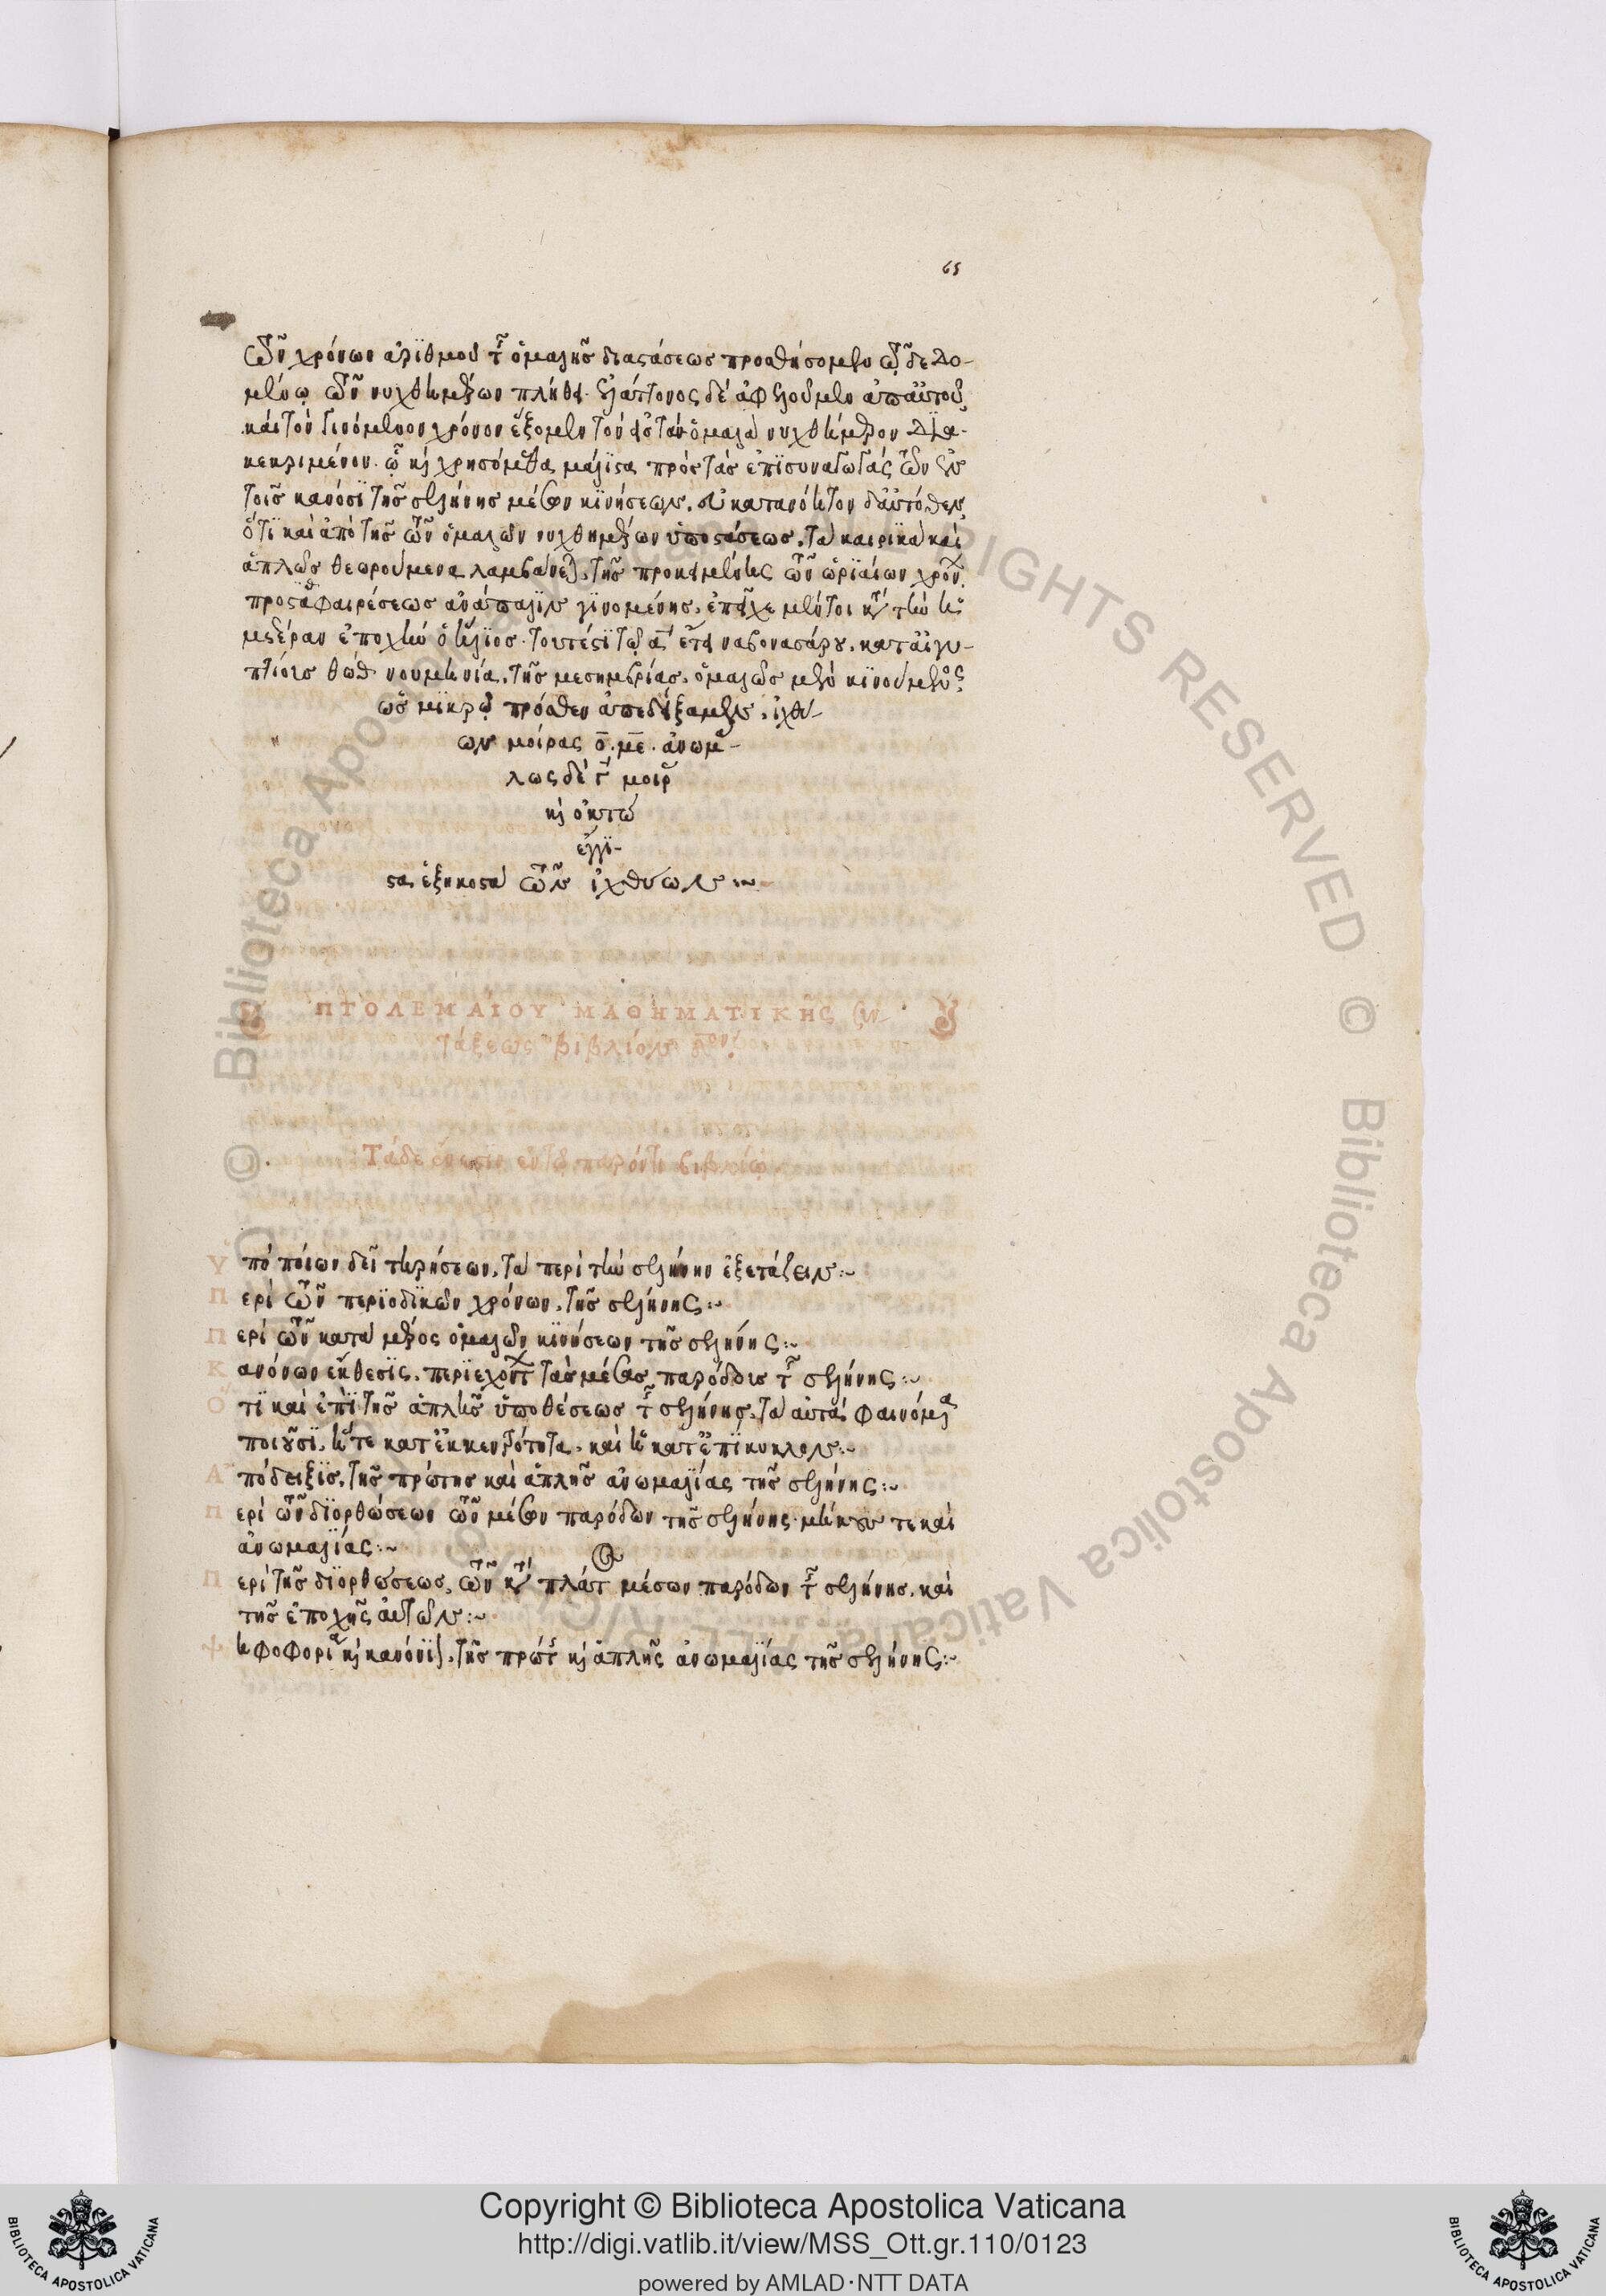 65
τῶν χρόνων ἀριθμοῦ τῆς ὁμαλῆς διαστάσεως προσθήσομεν τῷ δεδο-
μένῳ τῶν νυχθημέρων πλήθει· ἐλάττονος δὲ ἀφελοῦμεν ἀπ' αὐτοῦ,
καὶ τὸν γινόμενον χρόνον ἕξομεν τὸν εἰς τὰ ὁμαλὰ νυχθήμερον δια-
κεκριμένον. ᾧ καὶ χρησόμεθα μάλιστα πρὸς τὰς ἐπισυναγωγὰς τῶν ἐν
τοῖς κανόσι τῆς σελήνης μέσων κινήσεων. εὐκατανόητον δ' αὐτόθεν,
ὅτι καὶ ἀπὸ τῆς τῶν ὁμαλῶν νυχθημέρων ὑποστάσεως, τὰ καιρικὰ καὶ
ἁπλῶς θεωρούμενα λαμβάνεται, τῆς προκειμένης τῶν ὡριαίων χρόνων
προσθαφαιρέσεως ἀνάπαλιν γινομένης. ἐπεῖχε μέντοι κατὰ τὴν ἡ-
μετέραν ἐποχὴν ὁ ἥλιος. τουτέστι τῷ αʹ ἔτει ναβονασάρου, κατ' αἰγυ-
πτίους θὼθ νουμηνίᾳ, τῆς μεσημβρίας, ὁμαλῶς μὲν κινούμενος
ὡς μικρῷ πρόσθεν ἀπεδείξαμεν, ἰχθύ-
ων μοίρας ο. με. ἀνωμά-
λως δὲ γʹ μοίρας
καὶ ὀκτὼ
ἔγγι-
στα ἑξηκοστὰ τῶν ἰχθύων :~
ΠΤΟΛΕΜΑΙΟΥ ΜΑΘΗΜΑΤΙΚΗΣ συν-
τάξεως βιβλίον
Τάδε ἔνεστιν ἐν τῷ παρόντι βιβλίῳ.
Ὑπὸ ποίων δεῖ τηρήσεων, τὰ περὶ τὴν σελήνην ἐξετάζειν :~
Περὶ τῶν περιοδικῶν χρόνων, τῆς σελήνης :~
Περὶ τῶν κατὰ μέρος ὁμαλῶν κινήσεων τῆς σελήνης :~
Κανόνων ἔκθεσις, περιεχόντων τὰς μέσας παρόδους τῆς σελήνης :~
Ὅτι καὶ ἐπὶ τῆς ἁπλῆς ὑποθέσεως τῆς σελήνης, τὰ αὐτὰ φαινόμενα
ποιοῦσι, ἥ τε κατ' ἐκκεντρότητα, καὶ ἡ κατ' ἐπίκυκλον :~
Ἀπόδειξις, τῆς πρώτης καὶ ἁπλῆς ἀνωμαλίας τῆς σελήνης :~
Περὶ τῶν διορθώσεων τῶν μέσων παρόδων τῆς σελήνης μήκους τε καὶ
ἀνωμαλίας :~
Περὶ τῆς διορθώσεως, τῶν κατὰ πλάτος μέσων παρόδων τῆς σελήνης, καὶ
τῆς ἐποχῆς αὐτῶν :~
Ψηφοφορία καὶ κανόνιον, τῆς πρώτης καὶ ἁπλῆς ἀνωμαλίας τῆς σελήνης :~
© Biblioteca Apostolica Vaticana ALL RIGHTS RESERVED © Biblioteca Apostolica Vaticana ALL RIGHTS RESERVED
Copyright © Biblioteca Apostolica Vaticana
http://digi.vatlib.it/view/MSS_Ott.gr.110/0123
powered by AMLAD·NTT DATA
BIBLIOTECA APOSTOLICA VATICANA
BIBLIOTECA APOSTOLICA VATICANA